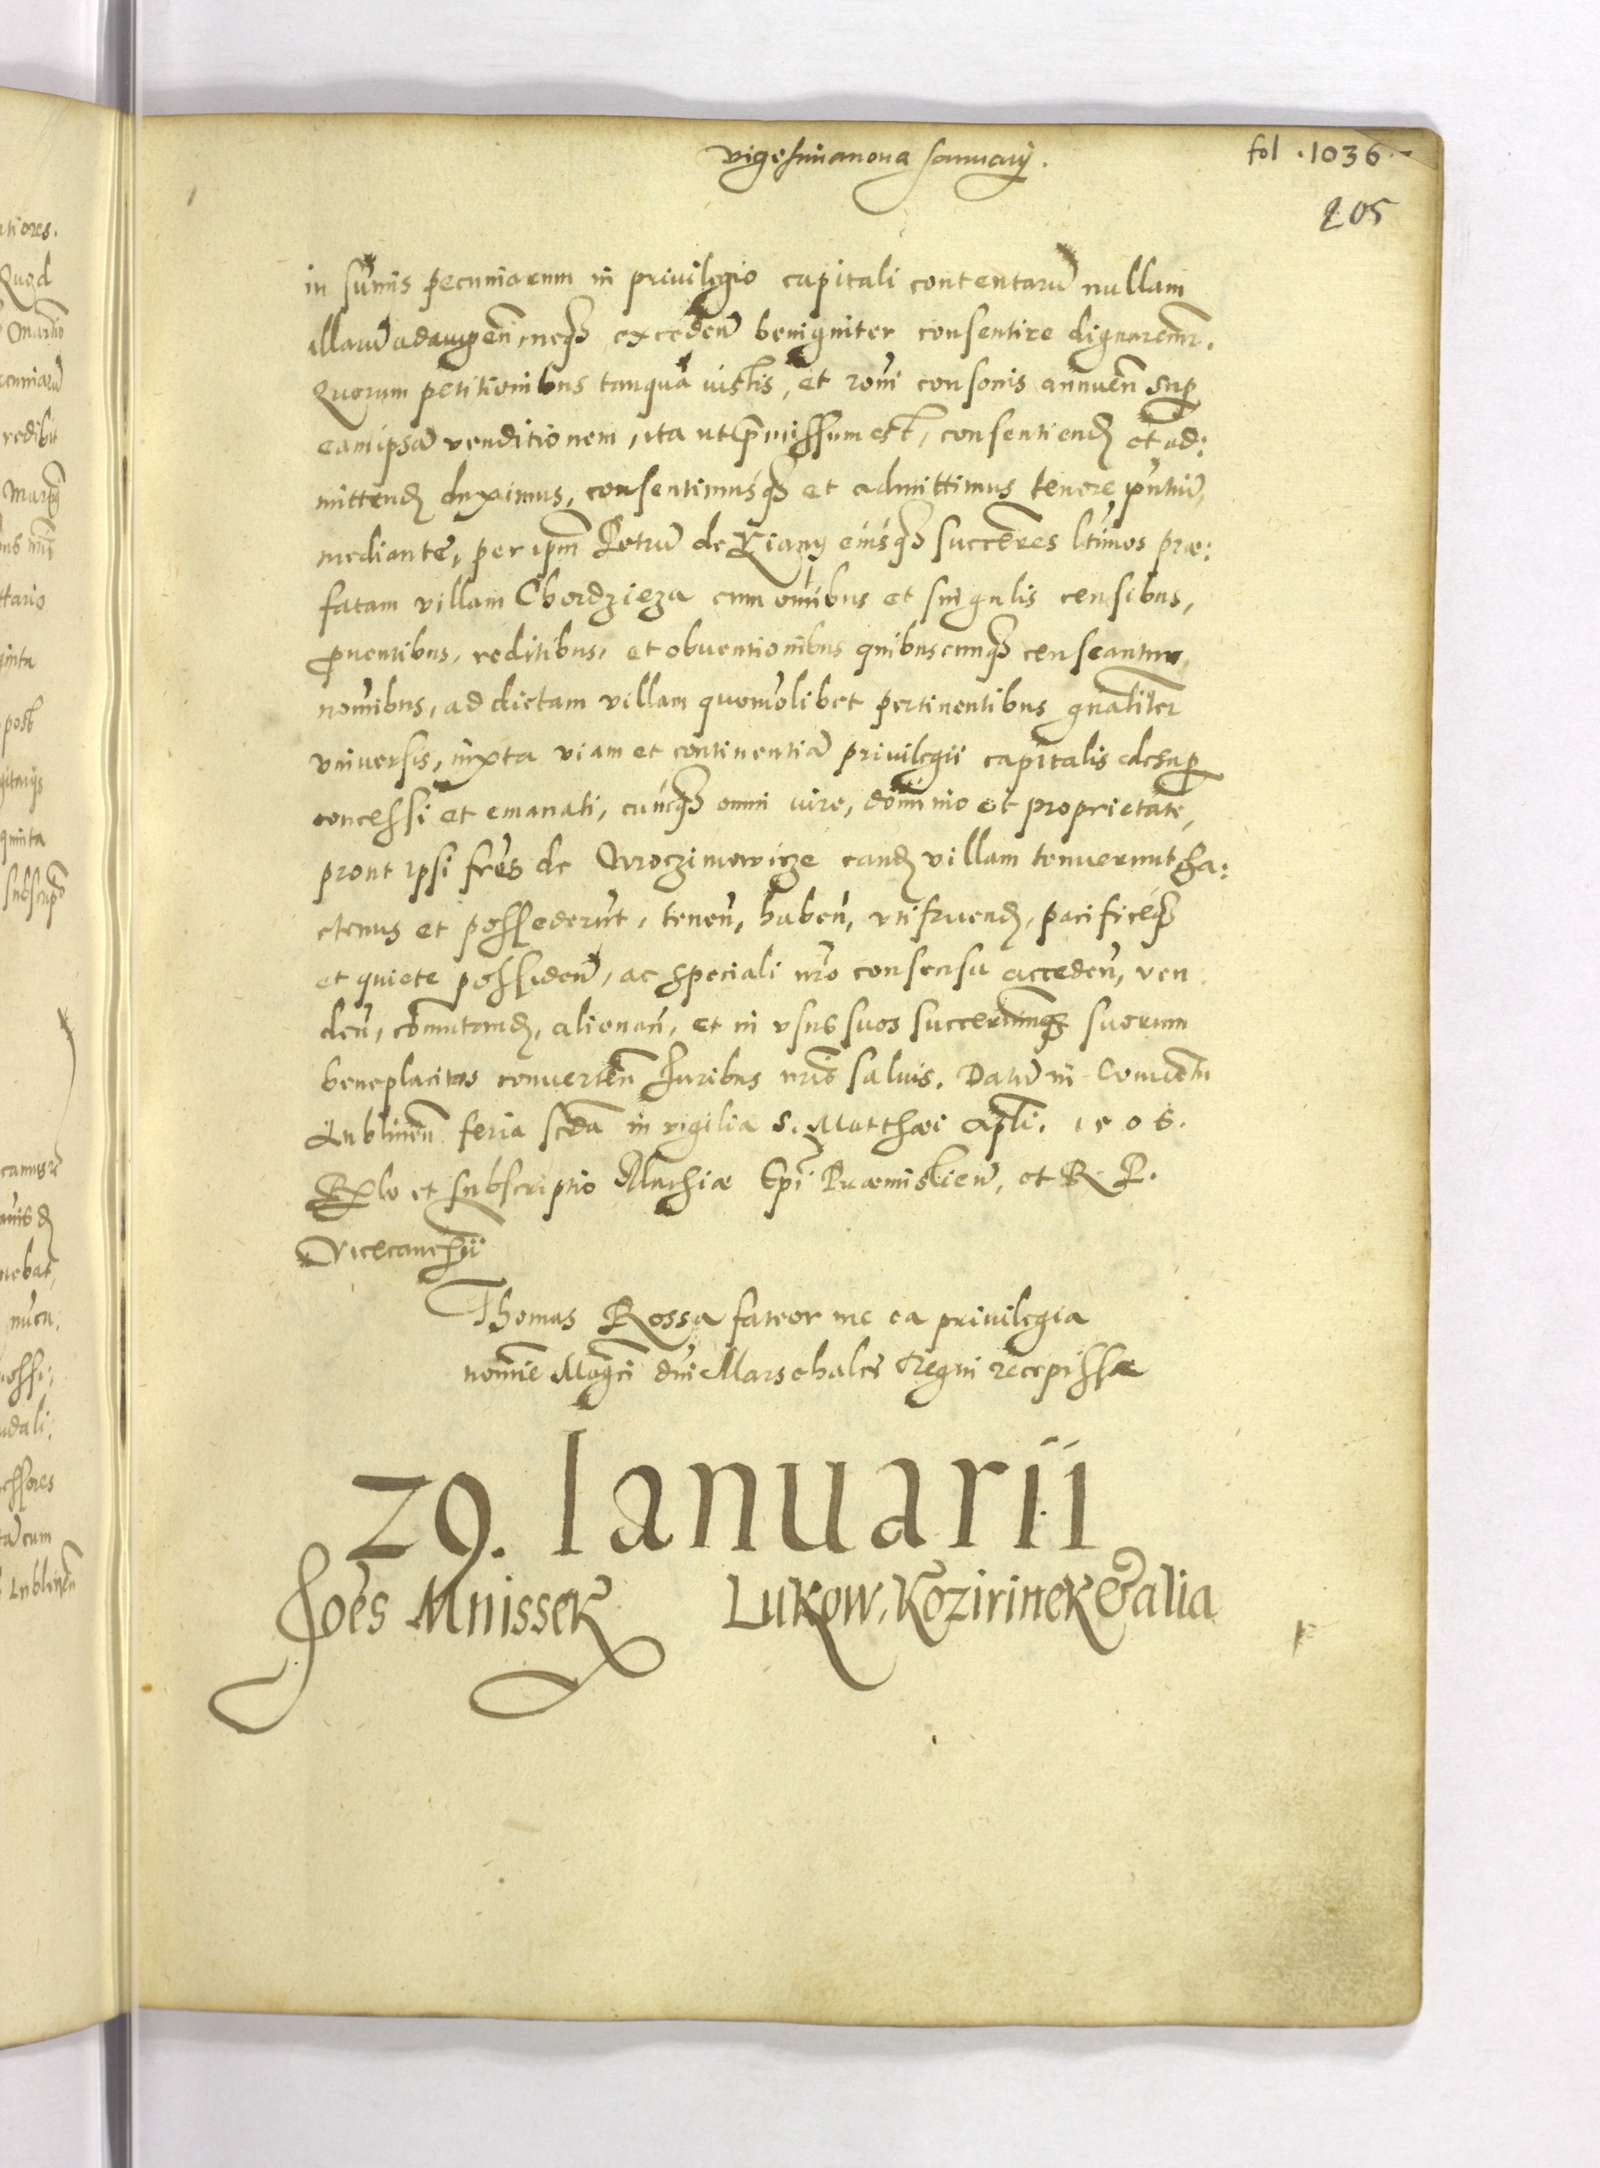 vigesimanona Januarij.
fol .1036.
205
in sum̃is pecuniarum in privilegio capitali contentarũ nullam
illarũ adaugen̄, neq₃ exceden̄ benigniter consentire dignaremr.
Quorum petitionibus tanquã iustis, et roñi consonis annuen̄ sup
eam ipsã venditionem, ita ut p̄missum est, consentiend̨ et ad:
mittend̨ duximus, consentimusq₃ et admittimus tenore pñtiũ,
mediante, per ipm̃ Petrũ de eiusq₃ succeres l̃timos præ:
fatam villam Chordzieza cum om̃ibus et singulis censibus,
p̱uentibus, reditibus, et obuentionibus quibuscunq₃ censeantur
nom̃ibus, ad dictam villam quomolibet pertinentibus gñaliter
vniuersis, iuxta viam et continentiã privilegii capitalis desup
concessi et emanati, cumq₃ omni iure, dominio et proprietate,
prout ipsi fres de Wroczimowicze eand̨ villam tenuerunt ha:
ctenus et possederũt, tenen̄, haben̄, vtifruend̨, pacificeq₃
et quiete possiden̄, ac speciali nr̃o consensu acceden̄, ven
den̄, com̃utand̨, alienan̄, et in vsus suos succerumq₃ suorum
beneplacitos conuerten̄ Juribus nris saluis. Datũ in Conuentu
Lublinen̄ feria scda in vigilia S. Matthæi Apli. 1506.
Rlo et subscriptio Mathiæ Epi Præmislien̄, et R. P.
Vicecancrii
Thomas Rossa fateor me ea privilegia
nomine Magci dni Marschalci Regni recepisse
29. Ianuarii
Joẽs Mnissek Lukow, Kozirinek & alia